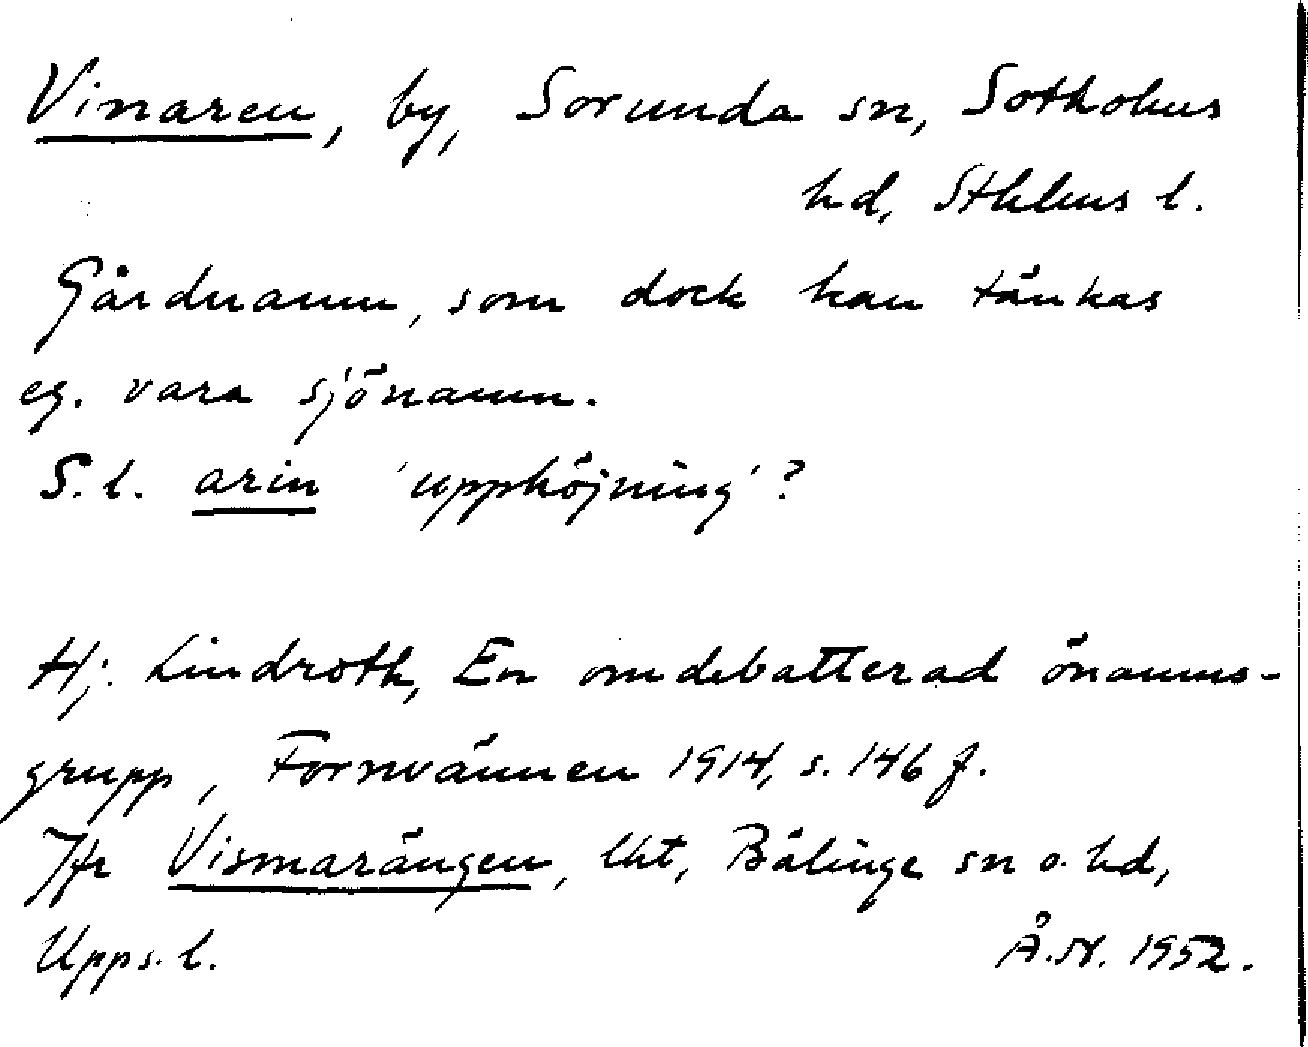 Vinaren, by, Sorunda sn, Sotholms
hd, Sthlms l.
Gårdnamn, som dock kan tänkas
eg. vara sjönamn.
S.l. arin 'upphöjning'?
Hj. Lindroth, En omdebatterad önamns-
grupp, Fornvännen 1914, s. 146 f.
Jfr Vismarängen, lht, Bälinge sn o. hd,
Upps. l.
Å.N. 1952.